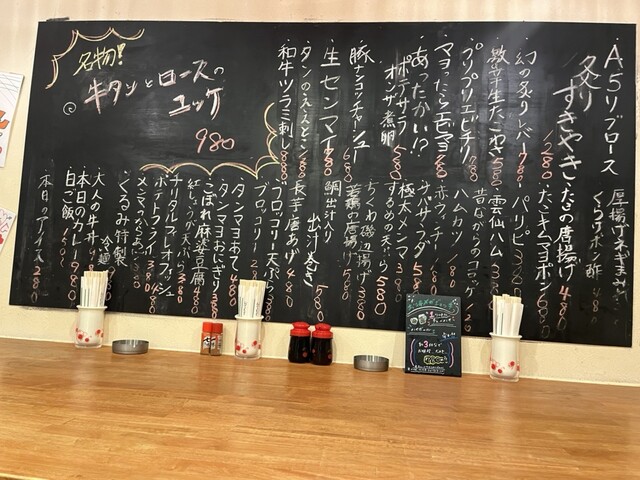 名物!!
牛タンとロースの
ユッケ
980
A5リブロース
炙りすきやき 1280
幻の炙りレバー 780
数の子生たこわさ 580
プリプリエビチリ 780
マヨったらエビマヨ 780
あったかい!?
ポテサラ
オンザ煮卵 580
豚ナンコツチャーシュー 680
生センマイ 780
タンのええとこ 980
和牛ツラミ刺し 880
厚揚げネギまみれ
くらげポン酢 480
たこの唐揚げ 480
たこキムマヨポン 680
パリピ 380
雲仙ハム 380
昔ながらのコロッケ
ハムカツ 180
赤ウインナー
サバサラダ 580
極太メンマ 380
するめの天ぷら 580
ちくわ磯辺揚げ 380
若鶏の唐揚げ 580
鯛出汁入り
出汁巻き 580
長芋唐あげ 480
ブロッコリー天ぷら 380
ブロッコリー 280
タンマヨおて
タンマヨおにぎり 380
こぼれ麻婆豆腐 680
紅しょうが天ぷら
チータルフィレオフィッシュ
ポテトフライ 380
メンマのからあげ
くるみ特製
冷麺
大人の牛丼
本日のカレー 980
白ご飯 150
本日のアイス 280